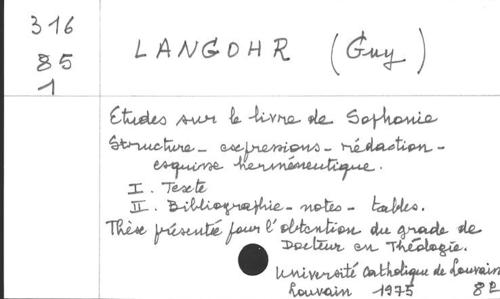 316
85
1
LANGOHR (Guy)
Etudes sur le livre de Sophonie
Structure - expressions - rédaction -
esquisse herméneutique.
I. Texte
II. Bibliographie - notes - tables.
Thèse présentée pour l'obtention du grade de
Docteur en Théologie.
Université Catholique de Louvain
Louvain 1975